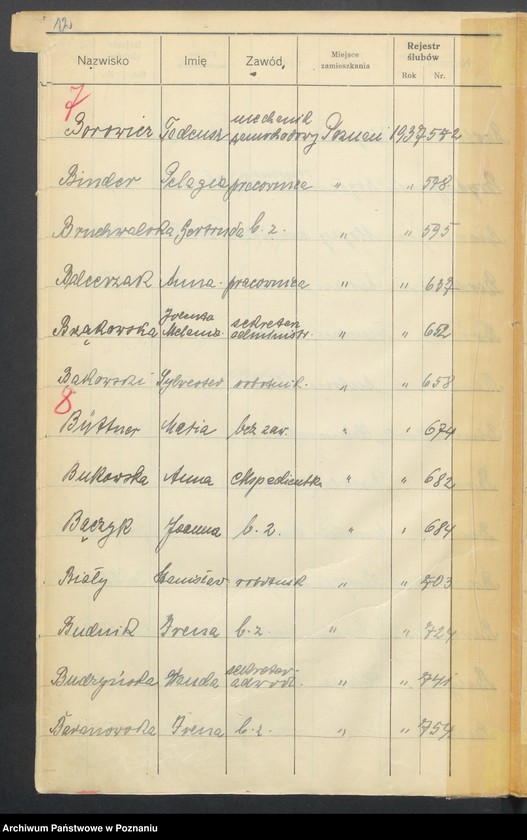 12
Nazwisko Imię Zawód Miejsce zamieszkania Rejestr ślubów Rok Nr.
7
Borowicz Tadeusz mechanik samochodowy Poznań 1937 542
Binder Pelagia pracownica " " 578
Bruchwalska Gertruda b. z. " " 595
Balcerzak Anna pracownica " " 637
Brąkowska Jolenta Melania sekretarz administr. " " 652
Bąkowski Sylwester robotnik " " 658
8
Büttner Maria bez zaw. " " 674
Bukowska Anna ekspedientka " " 682
Bączyk Joanna b. z. " " 684
Biały Stanisław robotnik " " 703
Budnik Irena b. z. " " 727
Budzyńska Wanda sekretar. adwok. " " 741
Baranowska Irena b. z. " " 754
Archiwum Państwowe w Poznaniu